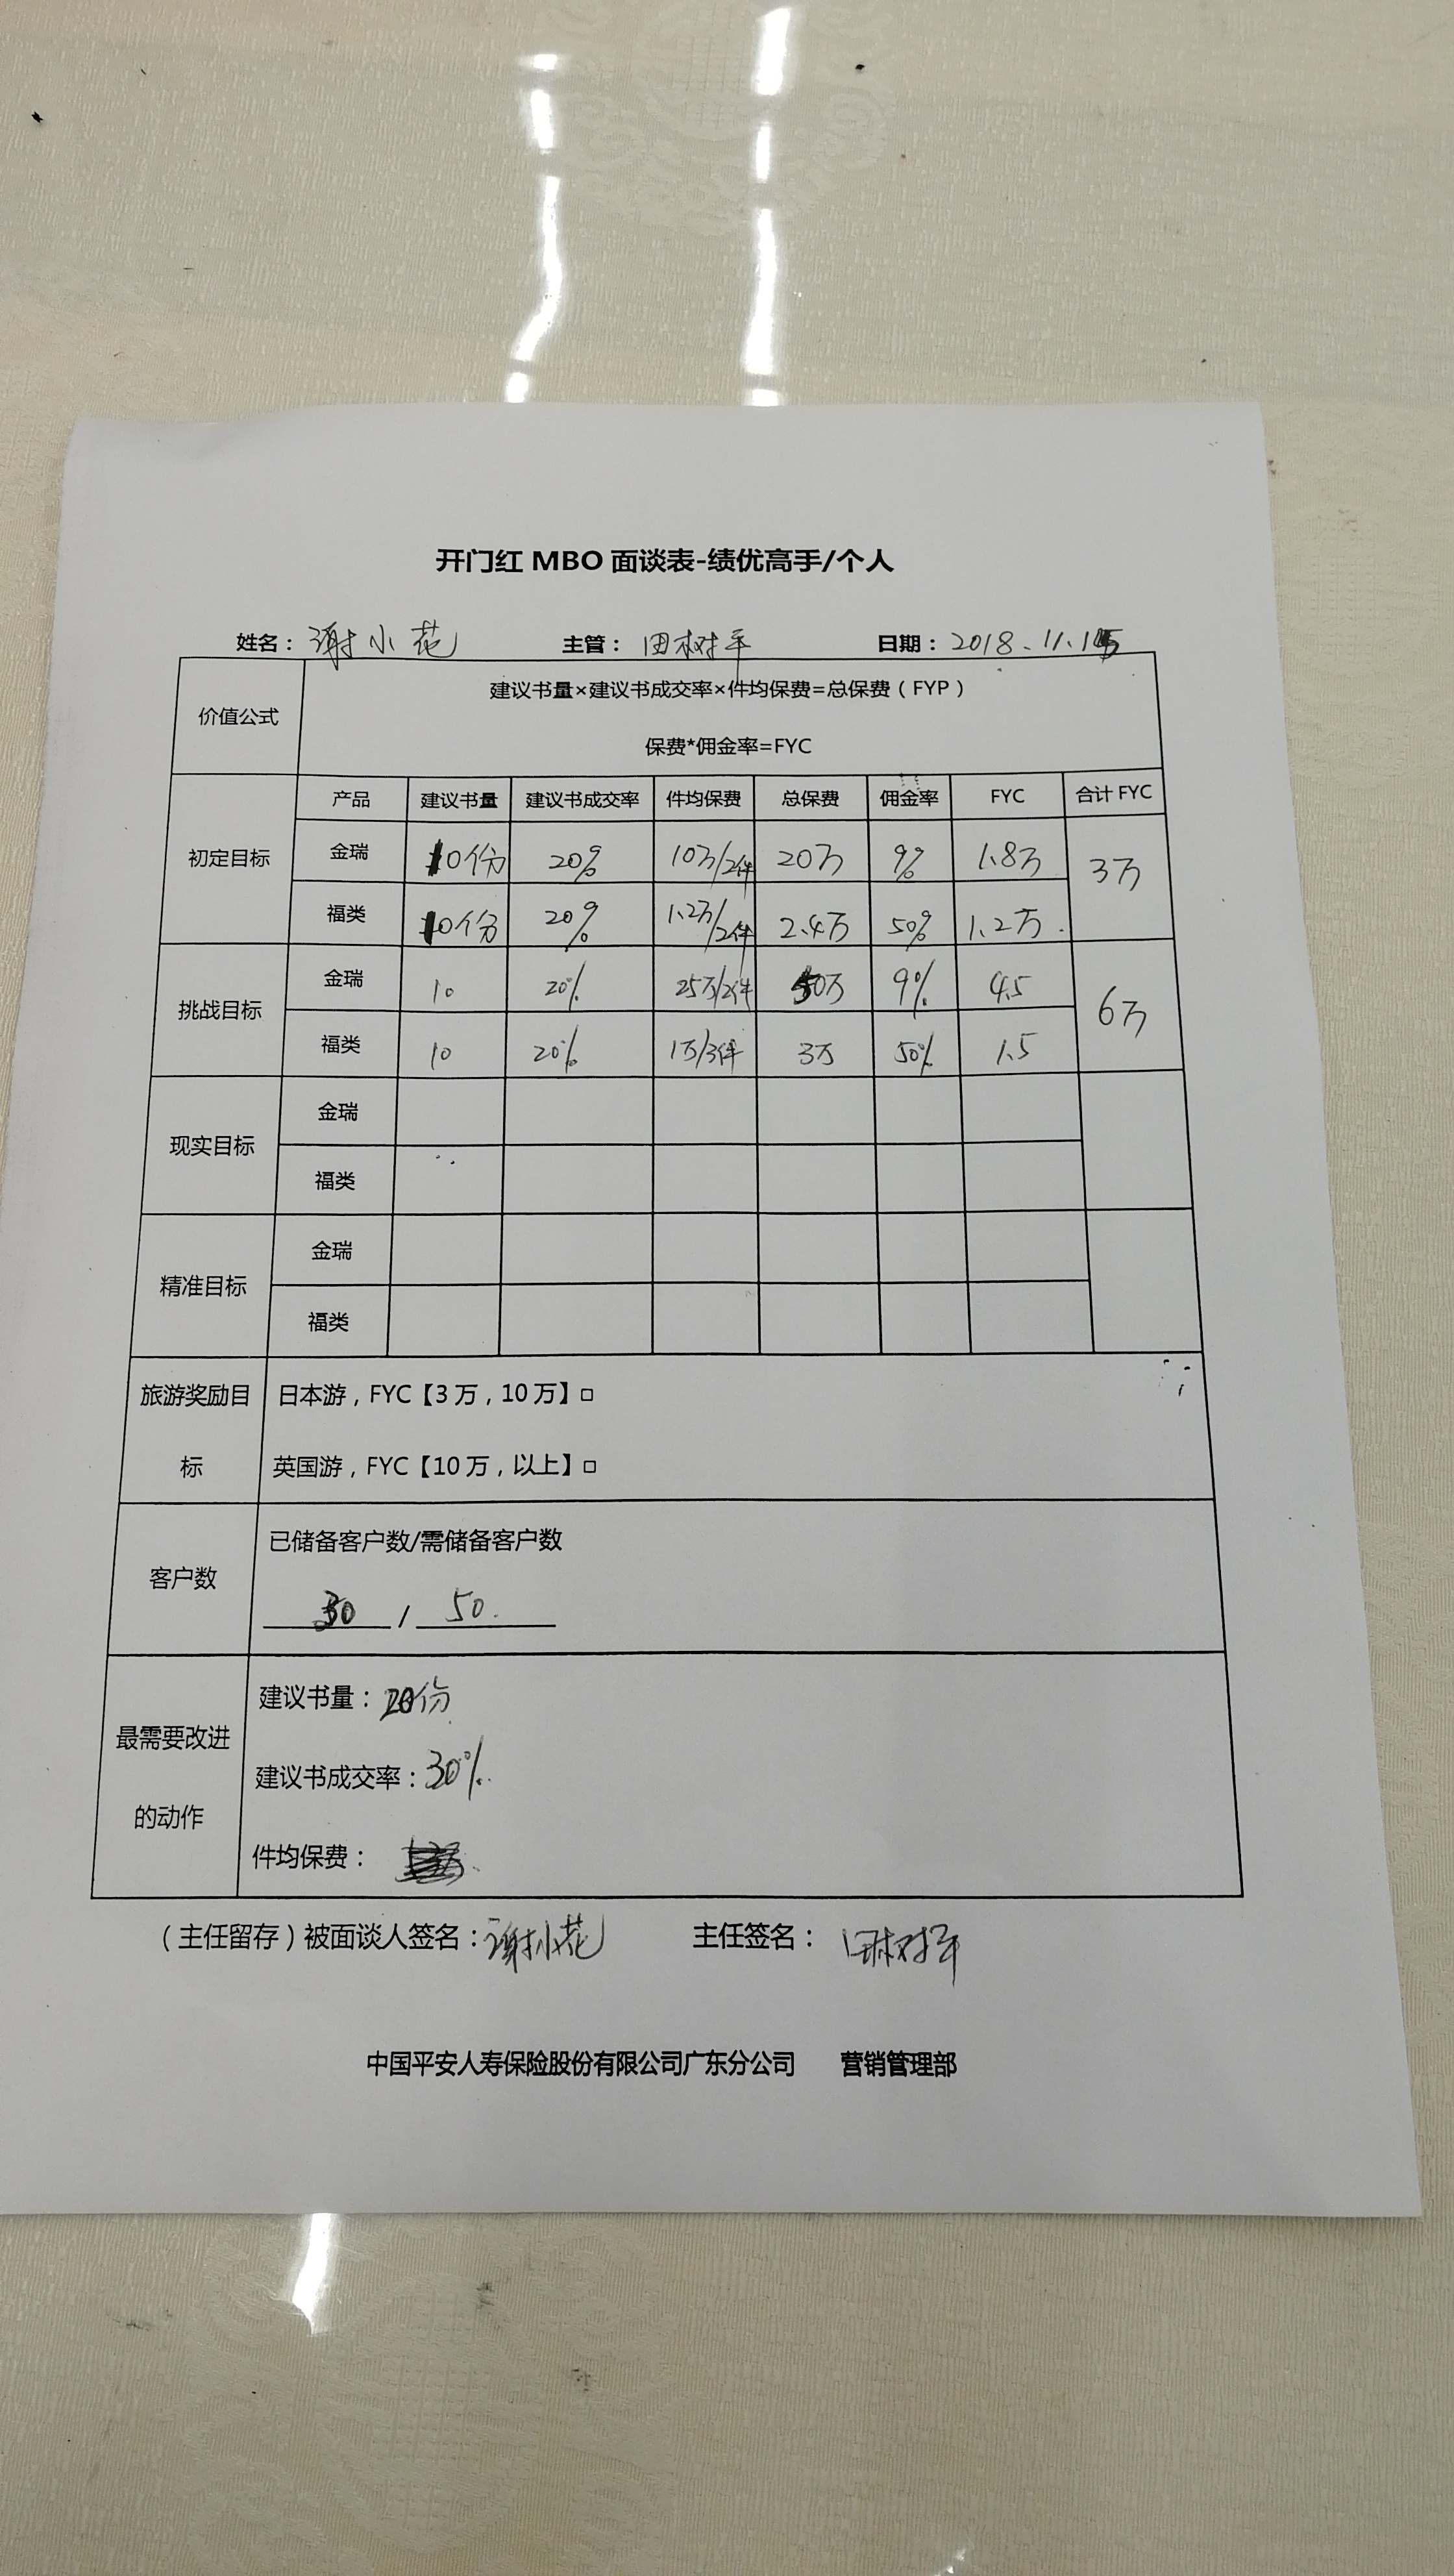 开门红 MBO 面谈表-绩优高手/个人
姓名：谢小花 主管：田树平 日期：2018.11.15
价值公式 建议书量×建议书成交率×件均保费=总保费（FYP）
保费*佣金率=FYC
产品 建议书量 建议书成交率 件均保费 总保费 佣金率 FYC 合计 FYC
初定目标 金瑞 10份 20% 10万/2件 20万 9% 1.8万 3万
福类 10份 20% 1.2万/2件 2.4万 50% 1.2万.
挑战目标 金瑞 10 20% 25万/2件 50万 9% 4.5 6万
福类 10 20% 1万/3件 3万 50% 1.5
现实目标 金瑞
福类
精准目标 金瑞
福类
旅游奖励目标 日本游，FYC【3 万，10 万】□
英国游，FYC【10 万，以上】□
客户数 已储备客户数/需储备客户数
30 / 50.
最需要改进的动作 建议书量：20份
建议书成交率：30%.
件均保费：
（主任留存）被面谈人签名：谢小花 主任签名：田树平
中国平安人寿保险股份有限公司广东分公司 营销管理部